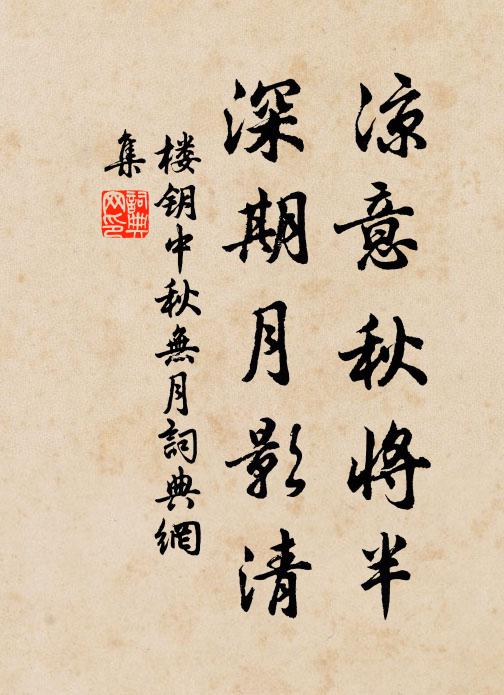 凉意秋将半
深期月影清
楼钥中秋無月詞典網
集
詞典
网印